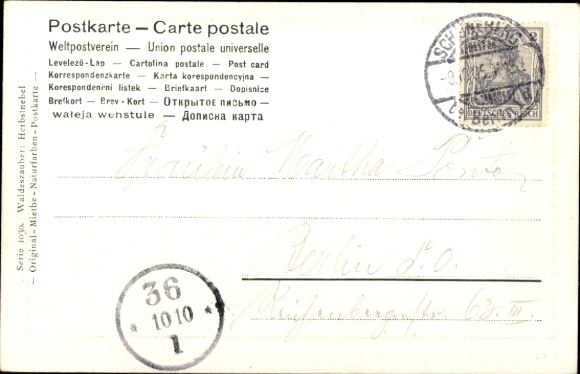 Postkarte — Carte postale
Weltpostverein — Union postale universelle
Levelező-Lap — Cartolina postale — Post card
Korrespondenzkarte — Karta korespondencyjna —
Korespondenční listek — Briefkaart — Dopisnice
Brefkort — Brev-Kort — Открытое письмо —
waleja wehstule — Дописна карта
Serie 1030. Waldeszauber: Herbstnebel
— Original-Miethe-Naturfarben-Postkarte —
SCHÖNEBERG
Berlin
DEUTSCHES REICH
Fräulein Martha
Berlin S.O.
Reichenbergerstr. 63. III.
36
* 10 10 *
1